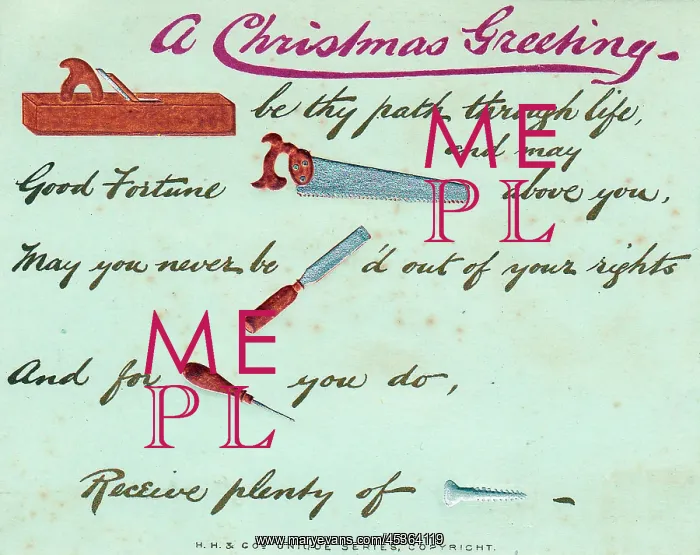 A Christmas Greeting
be thy path through life,
and may
Good Fortune above you,
May you never be 'd out of your rights
And for you do,
Receive plenty of –
H. H. & Co's UNIQUE SERIES, COPYRIGHT.
ME
PL
ME
PL
www.maryevans.com/45864119